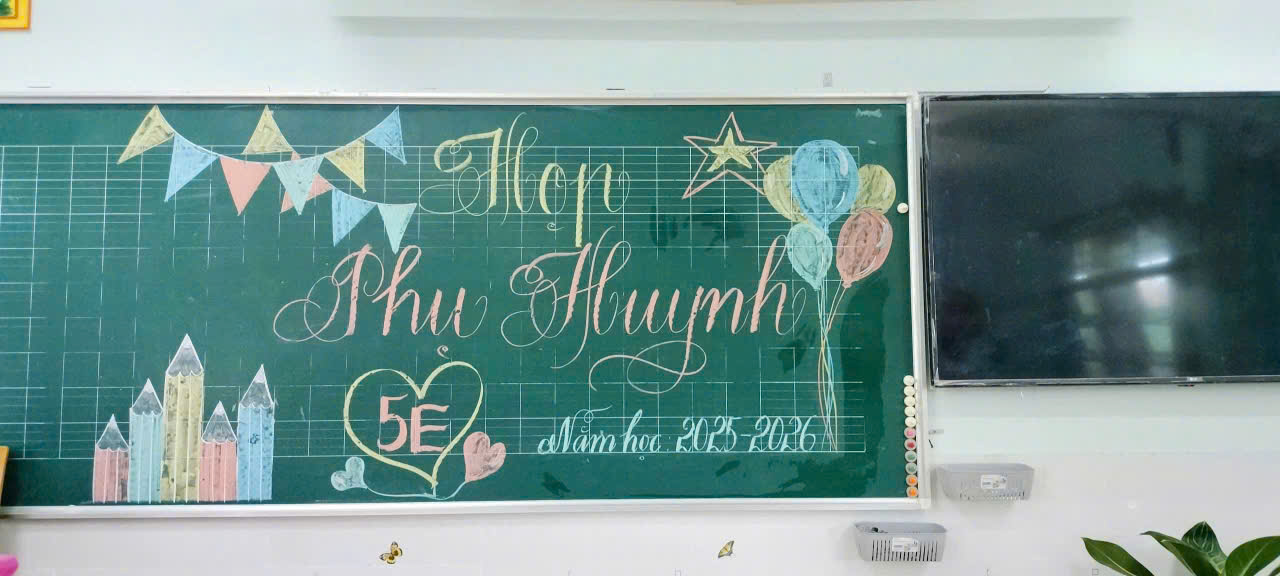 Họp
Phụ Huynh
5E
Năm học 2025-2026